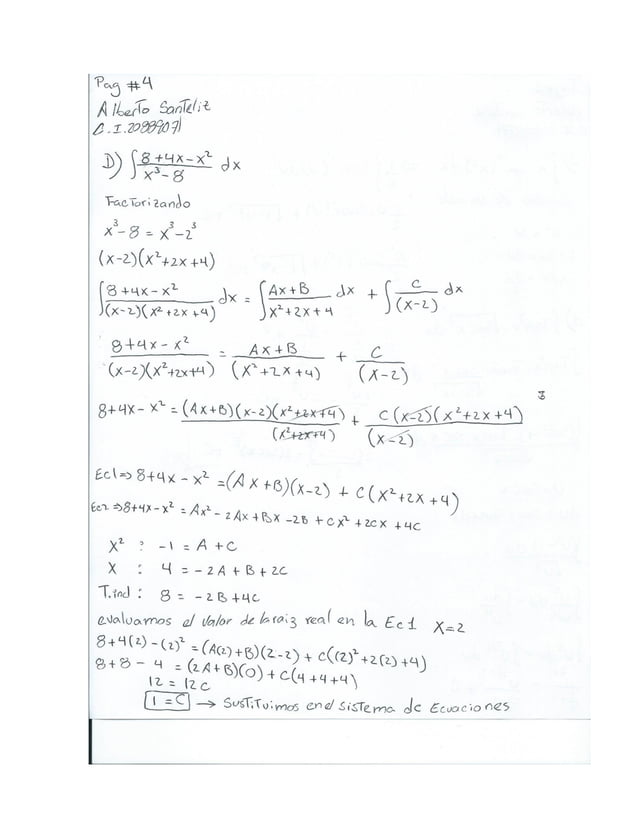 Pag #4
Alberto Santeliz
C.I.20889071
D) ∫ (8+4x−x²)/(x³−8) dx
Factorizando
x³−8 = x³−2³
(x−2)(x²+2x+4)
∫ (8+4x−x²)/((x−2)(x²+2x+4)) dx = ∫ (Ax+B)/(x²+2x+4) dx + ∫ C/(x−2) dx
(8+4x−x²)/((x−2)(x²+2x+4)) = (Ax+B)/(x²+2x+4) + C/(x−2)
8+4x−x² = (Ax+B)(x−2)(x²+2x+4)/(x²+2x+4) + C(x−2)(x²+2x+4)/(x−2)
Ec1⇒ 8+4x−x² = (Ax+B)(x−2) + C(x²+2x+4)
Ec2 ⇒8+4x−x² = Ax²−2Ax+Bx−2B+Cx²+2Cx+4C
x² : −1 = A+C
x : 4 = −2A+B+2C
T.ind : 8 = −2B+4C
evaluamos el valor de la raiz real en la Ec1 x=2
8+4(2)−(2)² = (A(2)+B)(2−2) + C((2)²+2(2)+4)
8+8−4 = (2A+B)(0)+C(4+4+4)
12 = 12C
1=C → Sustituimos en el sistema de Ecuaciones